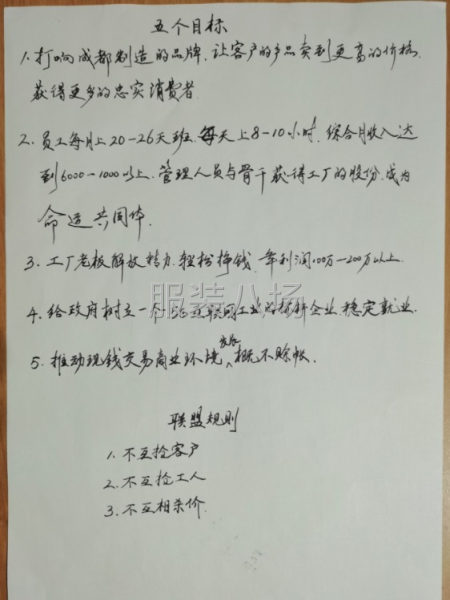 五个目标
1. 打响成都制造的品牌，让客户的产品卖到更高的价格，
获得更多的忠实消费者
2. 员工每月上20-26天班，每天上8-10小时，综合月收入达
到6000-1000以上，管理人员与骨干获得工厂的股份，成为
命运共同体。
3. 工厂老板解放精力，轻松挣钱，年利润100万-200万以上.
4. 给政府树立一个 互联网工业的标杆企业，稳定就业.
5. 推动现钱交易商业环境，发展概不赊帐.
服装八场
联盟规则
1. 不互抢客户
2. 不互抢工人
3. 不互相杀价